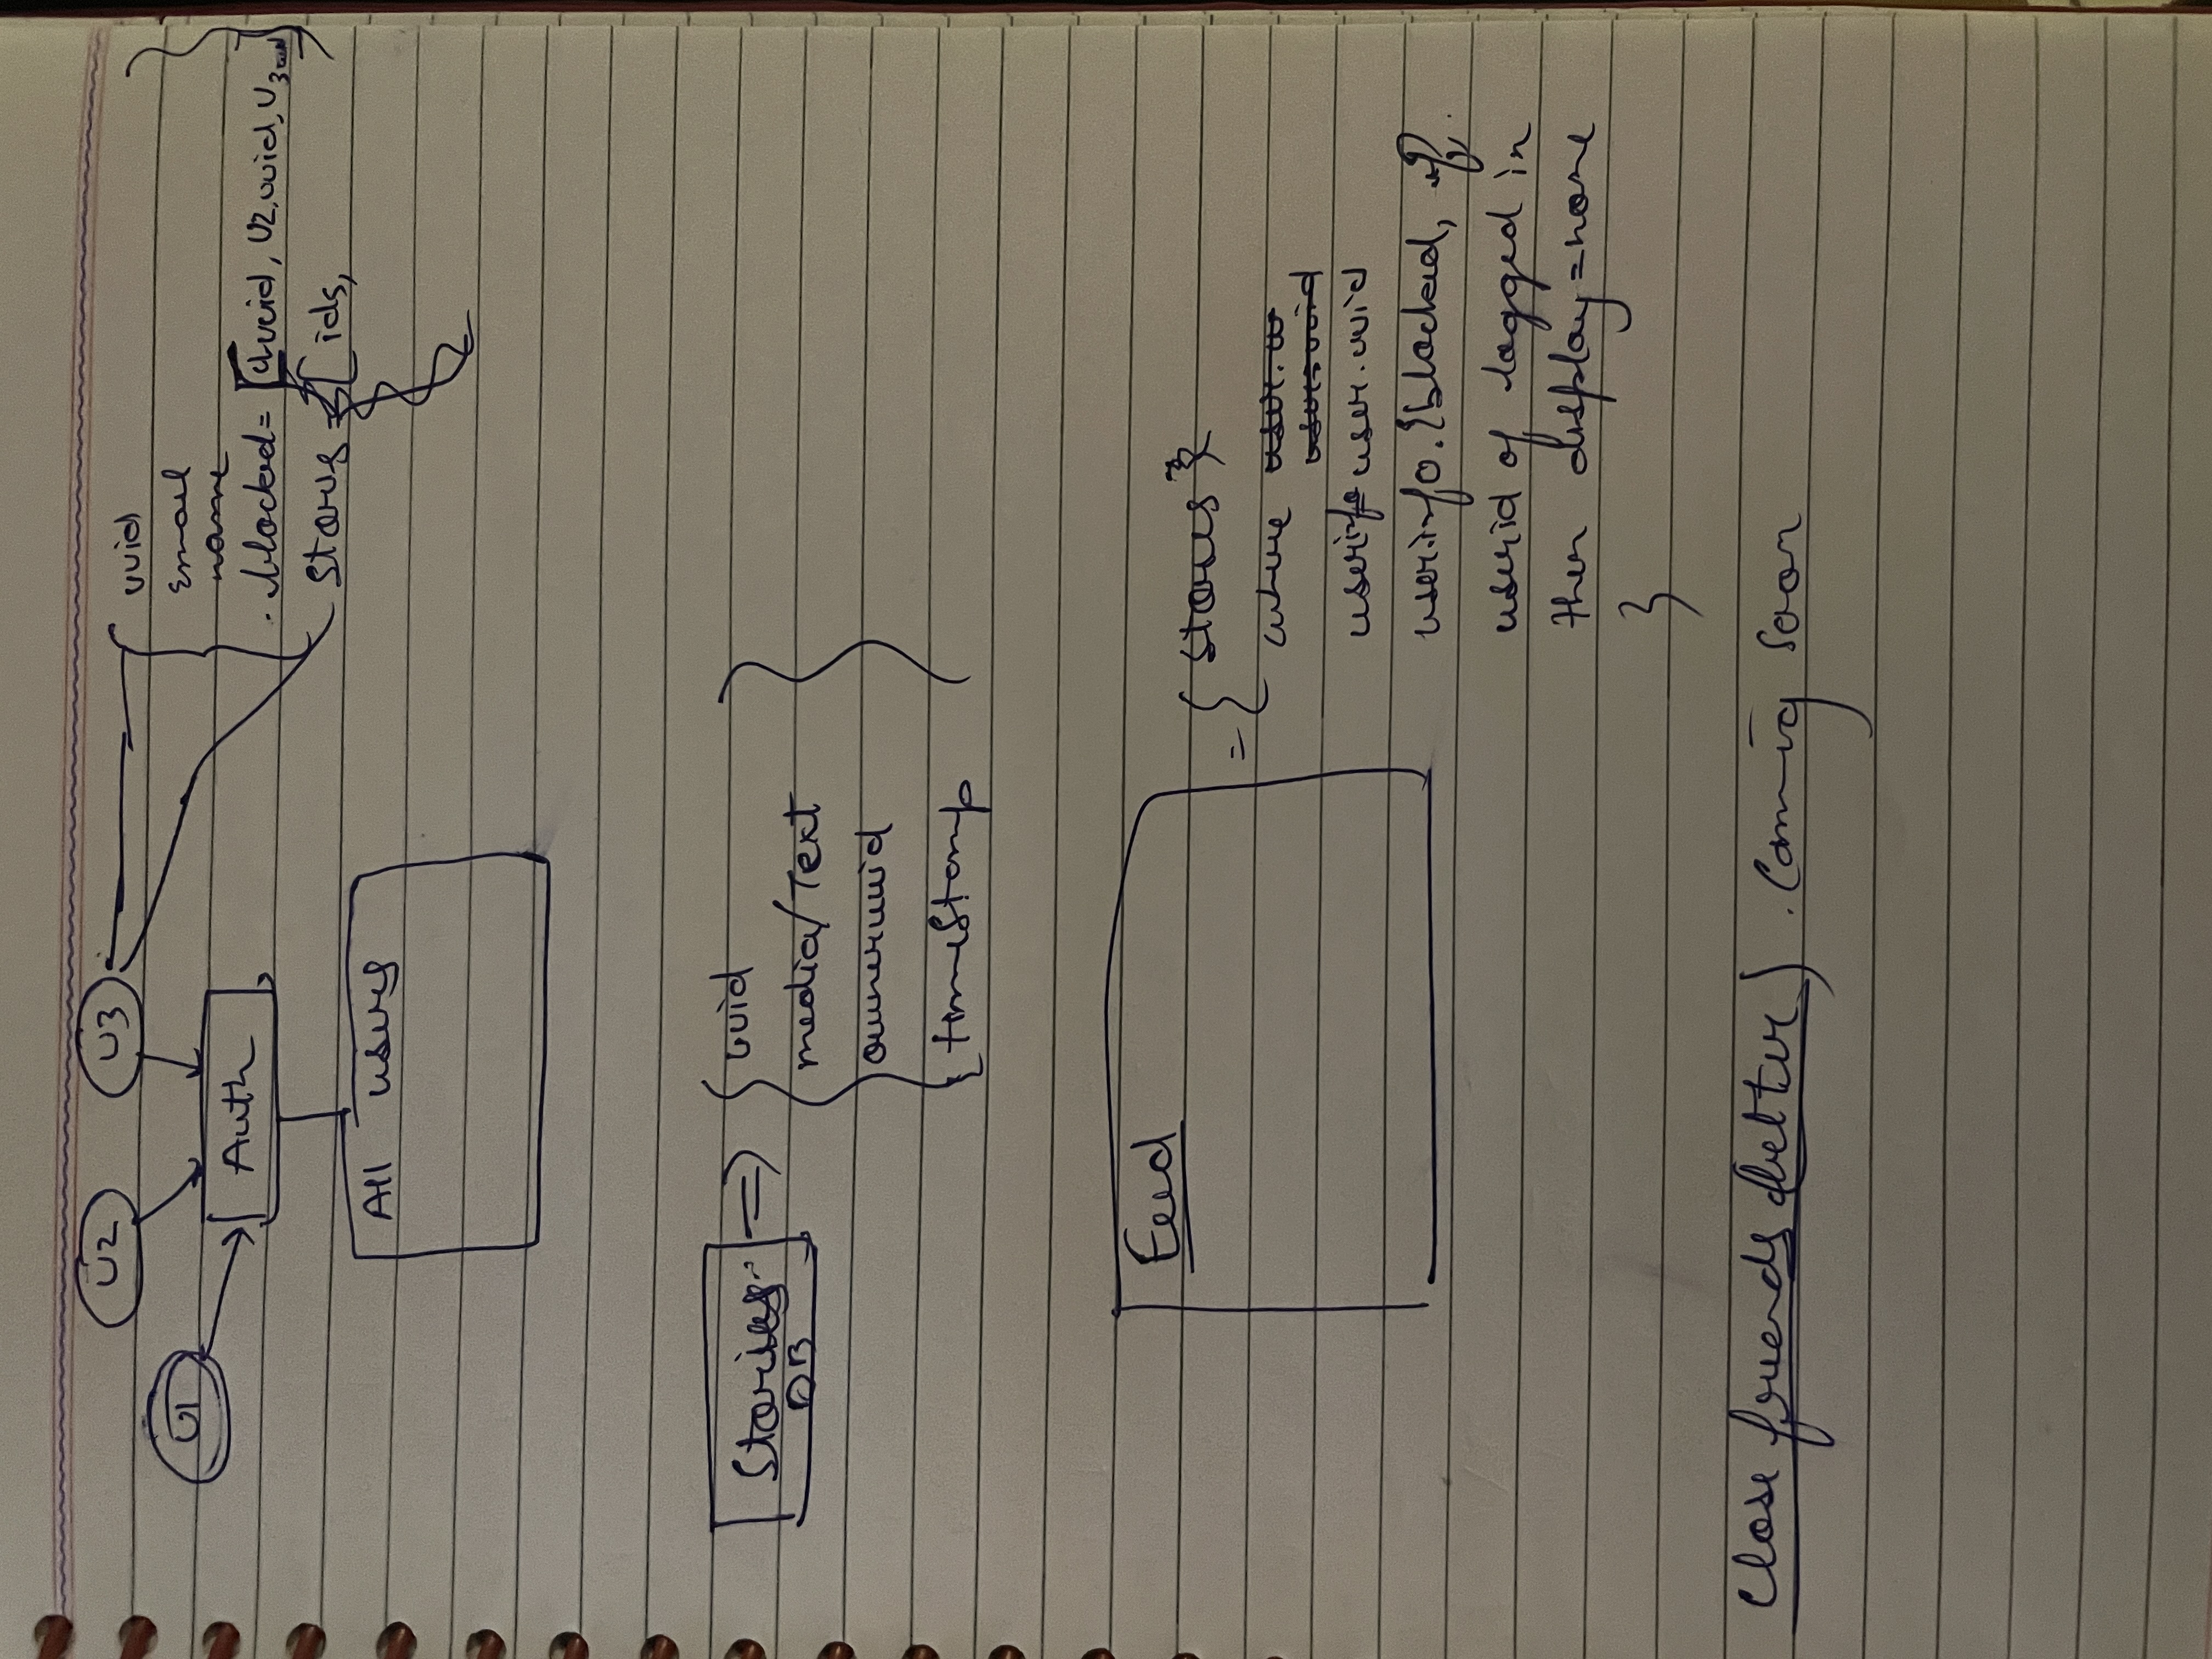 U2
U3
U1
Auth
All users
uuid
Email
name
blocked = [U1uuid, U2.uuid, U3uuid]
Stories = [ids,
Stories
DB
=>
{ uuid
media/Text
owneruuid
timeStamp }
Feed
= { stories }
where user.u
user.uuid
userinfo = user.uuid
userinfo.{blocked, if
userid of logged in
then display=none
}
Close friends (better) . Coming Soon